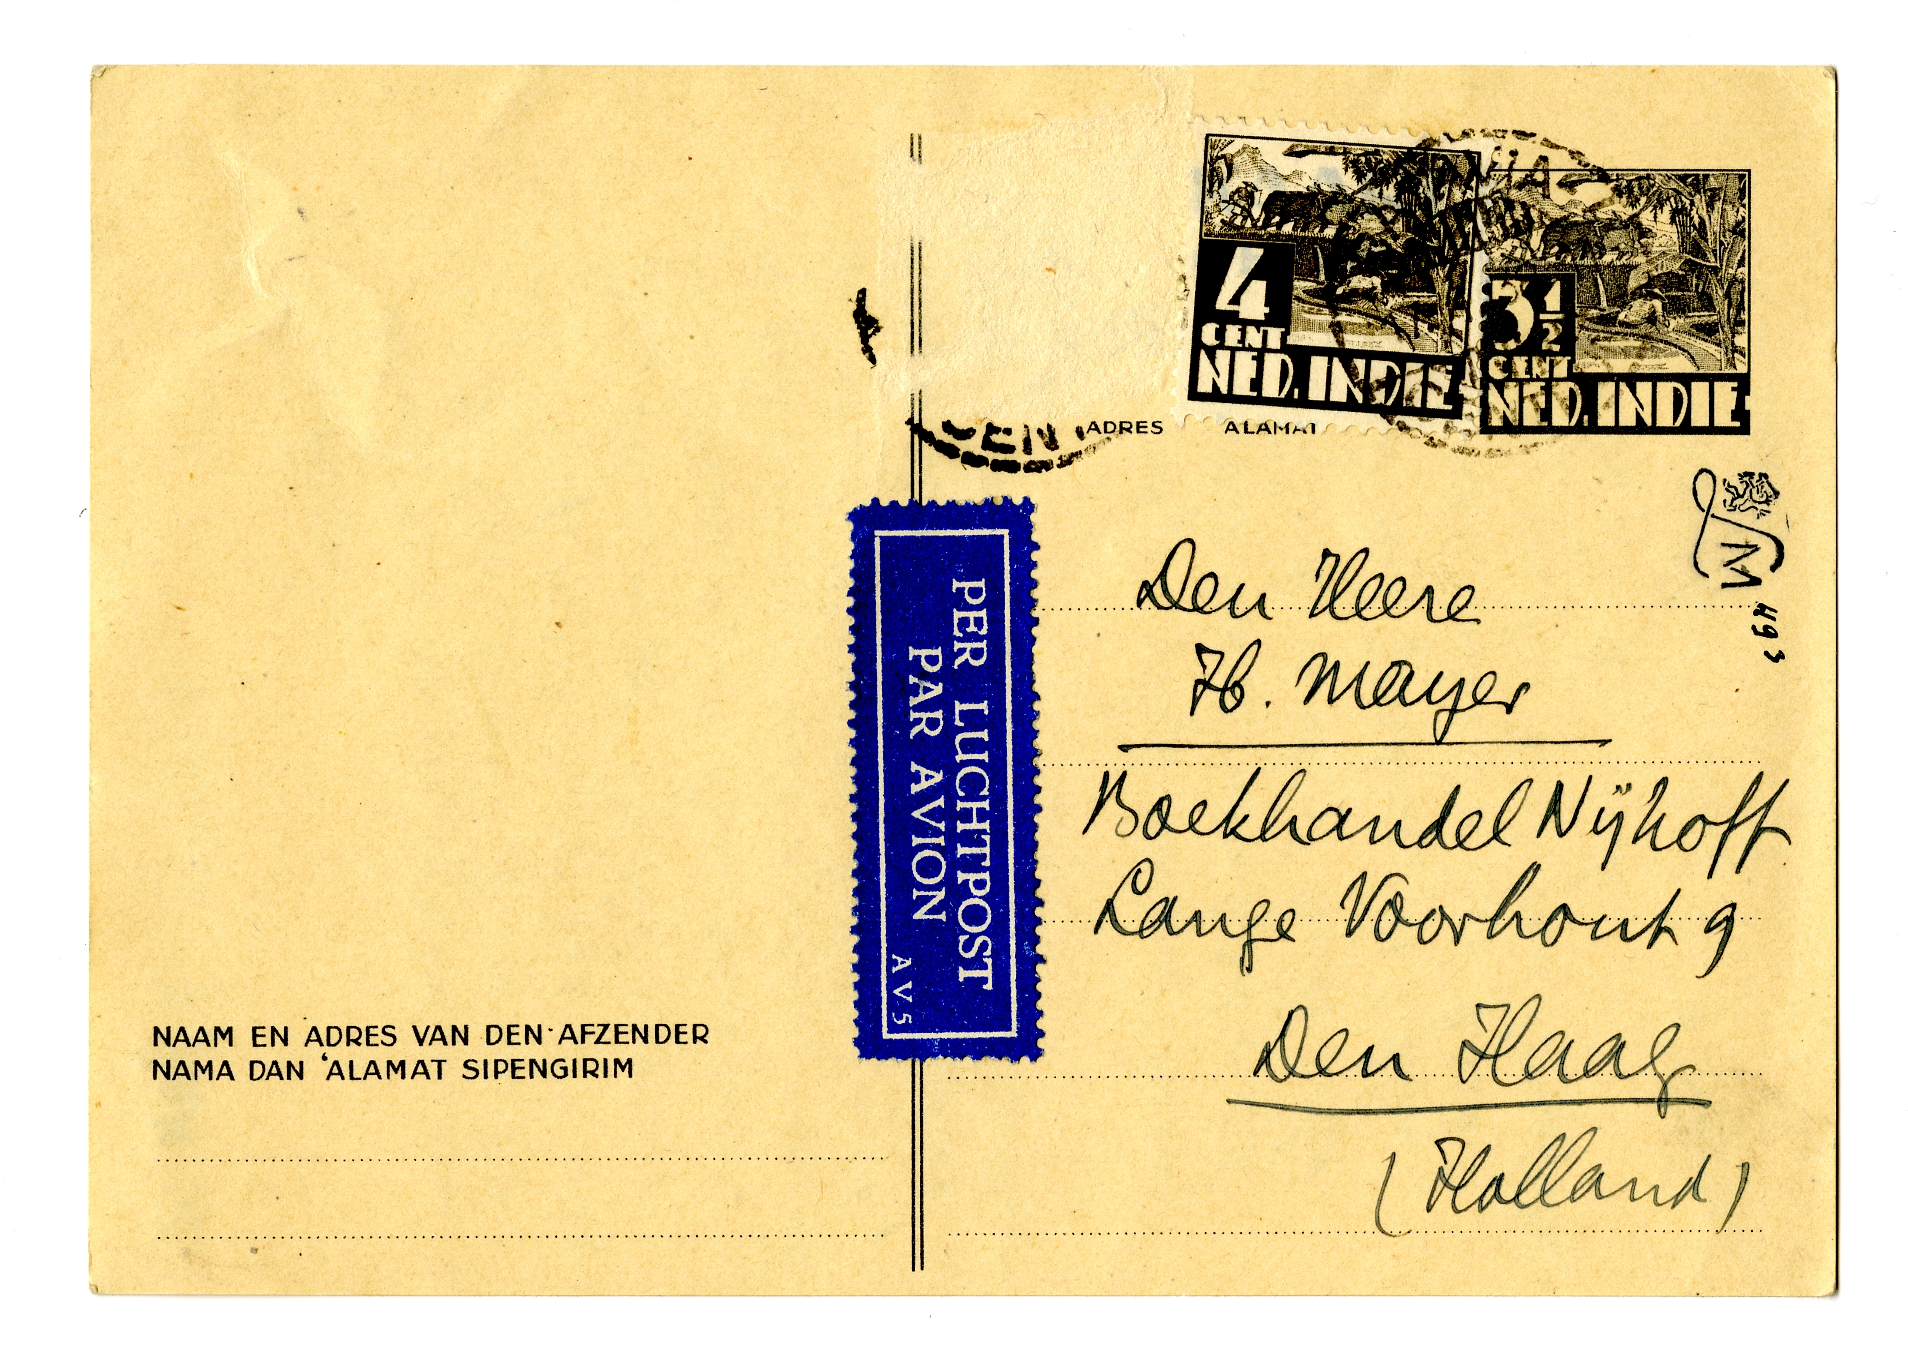 4
CENT
NED. INDIE
3½
CENT
NED. INDIE
DEN
ADRES ALAMAT
M
493
PER LUCHTPOST
PAR AVION
AV5
Den Heere
H. Mayer
Boekhandel Nijhoff
Lange Voorhout 9
Den Haag
(Holland)
NAAM EN ADRES VAN DEN AFZENDER
NAMA DAN ‘ALAMAT SIPENGIRIM